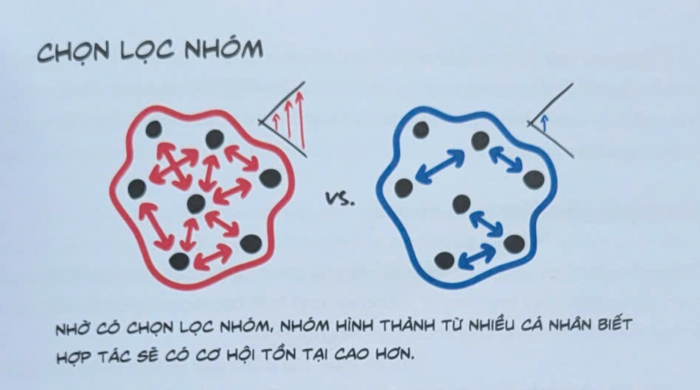 CHỌN LỌC NHÓM
vs.
NHỜ CÓ CHỌN LỌC NHÓM, NHÓM HÌNH THÀNH TỪ NHIỀU CÁ NHÂN BIẾT
HỢP TÁC SẼ CÓ CƠ HỘI TỒN TẠI CAO HƠN.